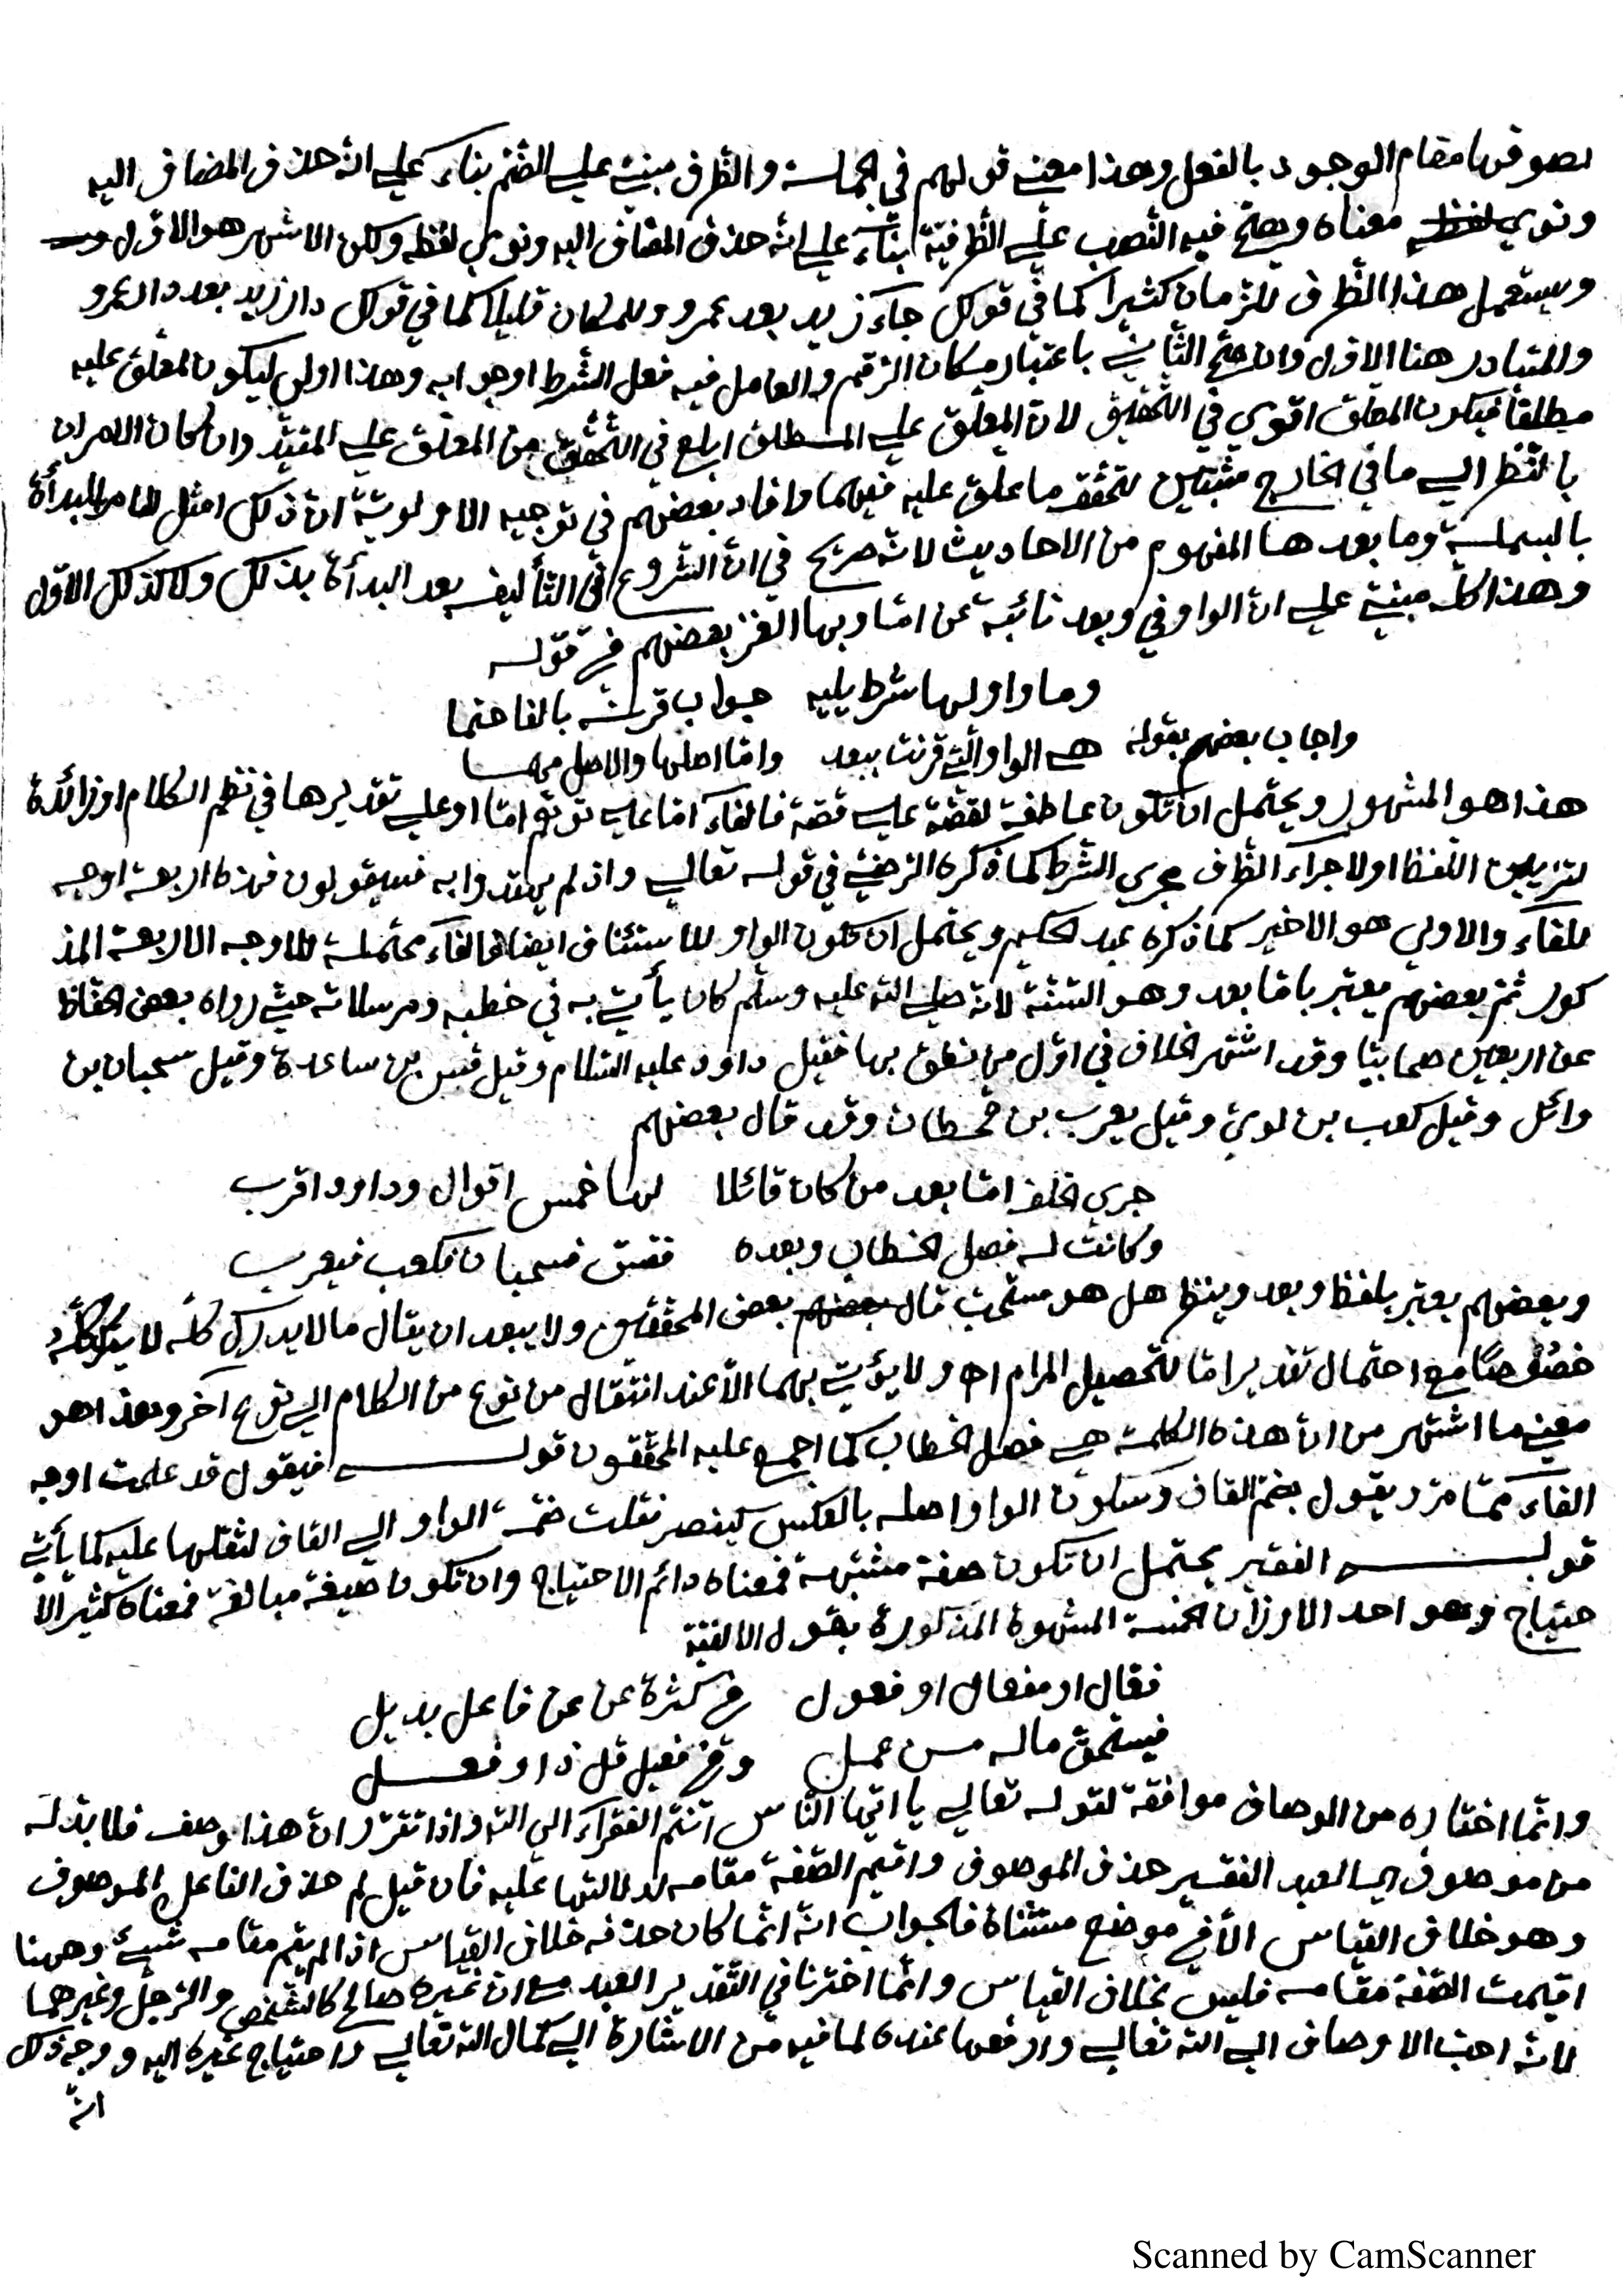 بصوقها مقام الوجود بالفعل وهذا معنى قولهم في الجملة والظرف مبني على الضم بناء على انه حذف المضاف اليه
ونوي لفظه معناه ويصح فيه النصب على الظرفية بناء على انه حذف المضاف اليه ونوي لفظه ولكن الاشهر هو الاول
ويستعمل هذا الظرف للزمان كثيرا كما في قولك جاء زيد بعد عمرو وللمكان قليلا كما في قولك دار زيد بعد دار عمرو
والمتبادر هنا الاول وان صح الثاني باعتبار مكان الرقم والعامل فيه فعل الشرط او جوابه وهذا اولى ليكون المعلق عليه
مطلقا فيكون المعلق اقوي في التحقيق لان المعلق على المطلق ابلغ في التحقق من المعلق على المقيد وان كان الامران
بالنظر الي ما في الخارج مثبتين لتحقق ما علق عليه فيهما وافاد بعضهم في توجيه الاولوية ان ذلك امثل للامر بالبدأة
بالبسملة وما بعدها المفهوم من الاحاديث لانه صريح في ان الشروع في التأليف بعد البدأة بذلك ولا كذلك الاول
وهذا كله مبني على ان الواو في وبعد نائبة عن اما وبها الغز بعضهم في قوله
وما واو لها شرط يليه جواب قرنه بالفا حتما
واجاب بعضهم بقوله هي الواو التي قرنت ببعد واما اصلها والاصل مهما
هذا هو المشهور ويحتمل ان تكون عاطفة لقصة على قصة فالفاء اما على توهم اما او على تقديرها في نظم الكلام او زائدة
لتزيين اللفظ او لاجراء الظرف مجري الشرط كما ذكره الرضي في قوله تعالى واذ لم يهتدوا به فسيقولون فهذه اربعة اوجه
للفاء والاولي هو الاخير كما ذكره عبد الحكيم ويحتمل ان تكون الواو للاستئناف ايضا فالفاء محتملة للاوجه الاربعة المذ
كورة ثم بعضهم يعبر باما بعد وهو السنة لانه صلى الله عليه وسلم كان يأتي به في خطبه ومراسلاته حيث رواه بعض الحفاظ
عن اربعين صحابيا وقد اشتهر الخلاف في اول من نطق بها فقيل داود عليه السلام وقيل قس بن ساعدة وقيل سحبان بن
وائل وقيل كعب بن لوي وقيل يعرب بن قحطان وقد قال بعضهم
جري الخلف اما بعد من كان قائلا لها خمس اقوال وداود اقرب
وكانت له فصل الخطاب وبعده فقس فسحبان فكعب فيعرب
وبعضهم يعبر بلفظ وبعد وينظر هل هو مستحب قال بعضهم بعض المحققين ولا يبعد ان يقال ما لا يدرك كله لا يترك كله
خصوصا مع احتمال تقدير اما لتحصيل المرام اهـ ولا يؤتي بهما الا عند انتقال من نوع من الكلام الي نوع آخر وهذا هو
معنى ما اشتهر من ان هذه الكلمة هي فصل الخطاب كما اجمع عليه المحققون قوله فيقول قد علمت اوجه
الفاء مما مر ويقول بضم القاف وسكون الواو اصله بالعكس كينصر نقلت ضمة الواو الي القاف لثقلها عليه كما يأتي
قوله الفقير يحتمل ان تكون صفة مشبهة فمعناه دائم الاحتياج وان تكون صيغة مبالغة فمعناه كثير الا
حتياج وهو احد الاوزان الخمسة المشهوة المذكورة بقول الالفية
فعال او مفعال او فعول في كثرة عن عن فاعل بديل
فيستحق ماله من عمل وفي فعيل قل ذا وفعل
وانما اختاره من الاوصاف موافقة لقوله تعالى يا ايها الناس انتم الفقراء الى الله واذا تقرر ان هذا وصف فلا بد له
من موصوف اي العبد الفقير حذف الموصوف واقيم الصفة مقامه لدلالتها عليه فان قيل لم حذف الفاعل الموصوف
وهو خلاف القياس الا في مواضع مستثناة فالجواب انه انما كان حذفه خلاف القياس اذا لم يقم مقامه شيئ وههنا
اقيمت الصفة مقامه فليس بخلاف القياس وانما اخترنا في التقدير العبد مع ان غيره صالح كالشخص والرجل وغيرهما
لانه احب الاوصاف الى الله تعالى وارفعها عنده لما فيه من الاشارة الى كمال الله تعالى واحتياج غيره اليه ووجه ذلك
انه
Scanned by CamScanner